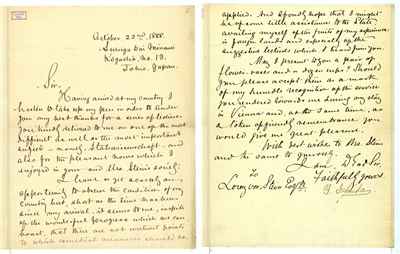 October 22nd, 1888.
Suruga dai Minami
Kogacho, No. 13.
Tokio, Japan.
Sir,
Having arrived at my country I
hasten to take up my pen in order to tender
you my best thanks for a series of lectures
you kindly delivered to me on one of the most
difficult as well as the most important
subject — namely, Statswissenschaft — and
also for the pleasant hours which I
enjoyed in your and Mrs. Stein's society.
I have as yet scarcely an
opportunity to observe the condition of my
country but, short as the time has been
since my arrival, it seems to me, in spite
of the wonderful progress which we can
boast, that there are not without points
to which remedial measures should be
applied. And I fondly hope that I might
be of some little assistance to the State,
availing myself of the fruits of my experience
in foreign lands and especially of the
suggestive lectures which I heard from you.
May I present to you a pair of
flower vases and a dozen cups? Should
you please accept them as a mark
of my humble recognition of the service
you rendered towards me during my stay
in Vienna and, at the same time, as a
token of friendly remembrance you
would give me great pleasure.
With best wishes to Mrs. Stein
and the same to yourself,
I am, Dear Sir,
Faithfully yours,
To
Lorenz von Stein Esqre.